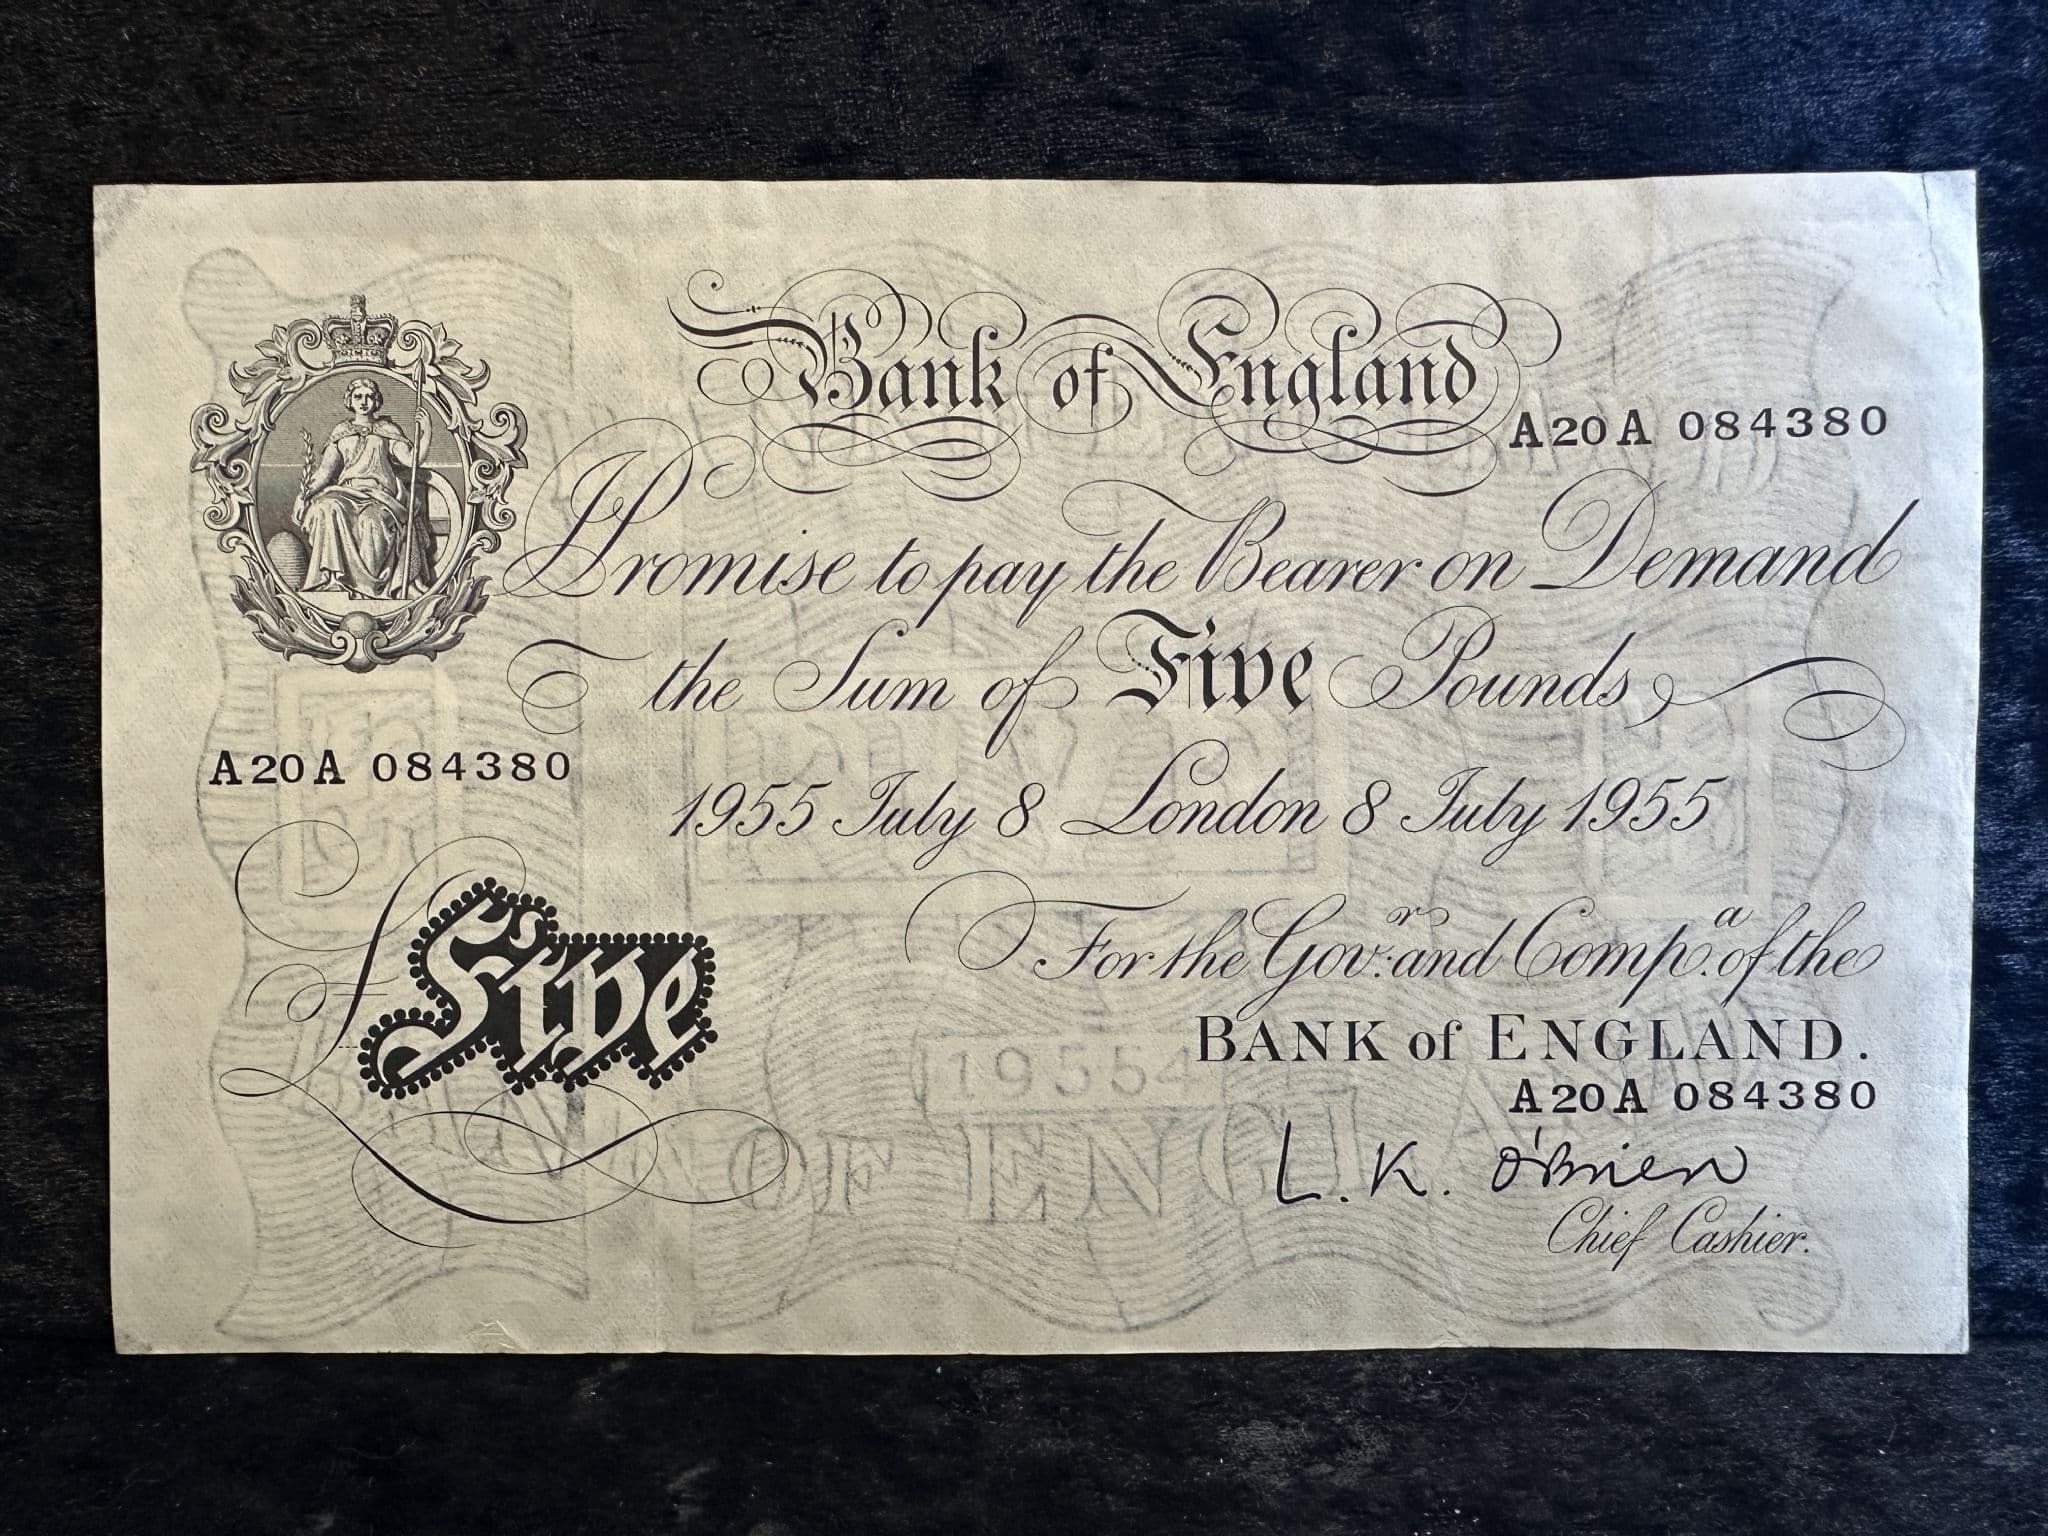 Bank of England
A20A 084380
I Promise to pay the Bearer on Demand
the Sum of Five Pounds
A20A 084380
1955 July 8 London 8 July 1955
£Five
For the Gov.r and Comp.a of the
BANK of ENGLAND.
A20A 084380
L. K. O'Brien
Chief Cashier.
FIVE
19554
BANK OF ENGLAND